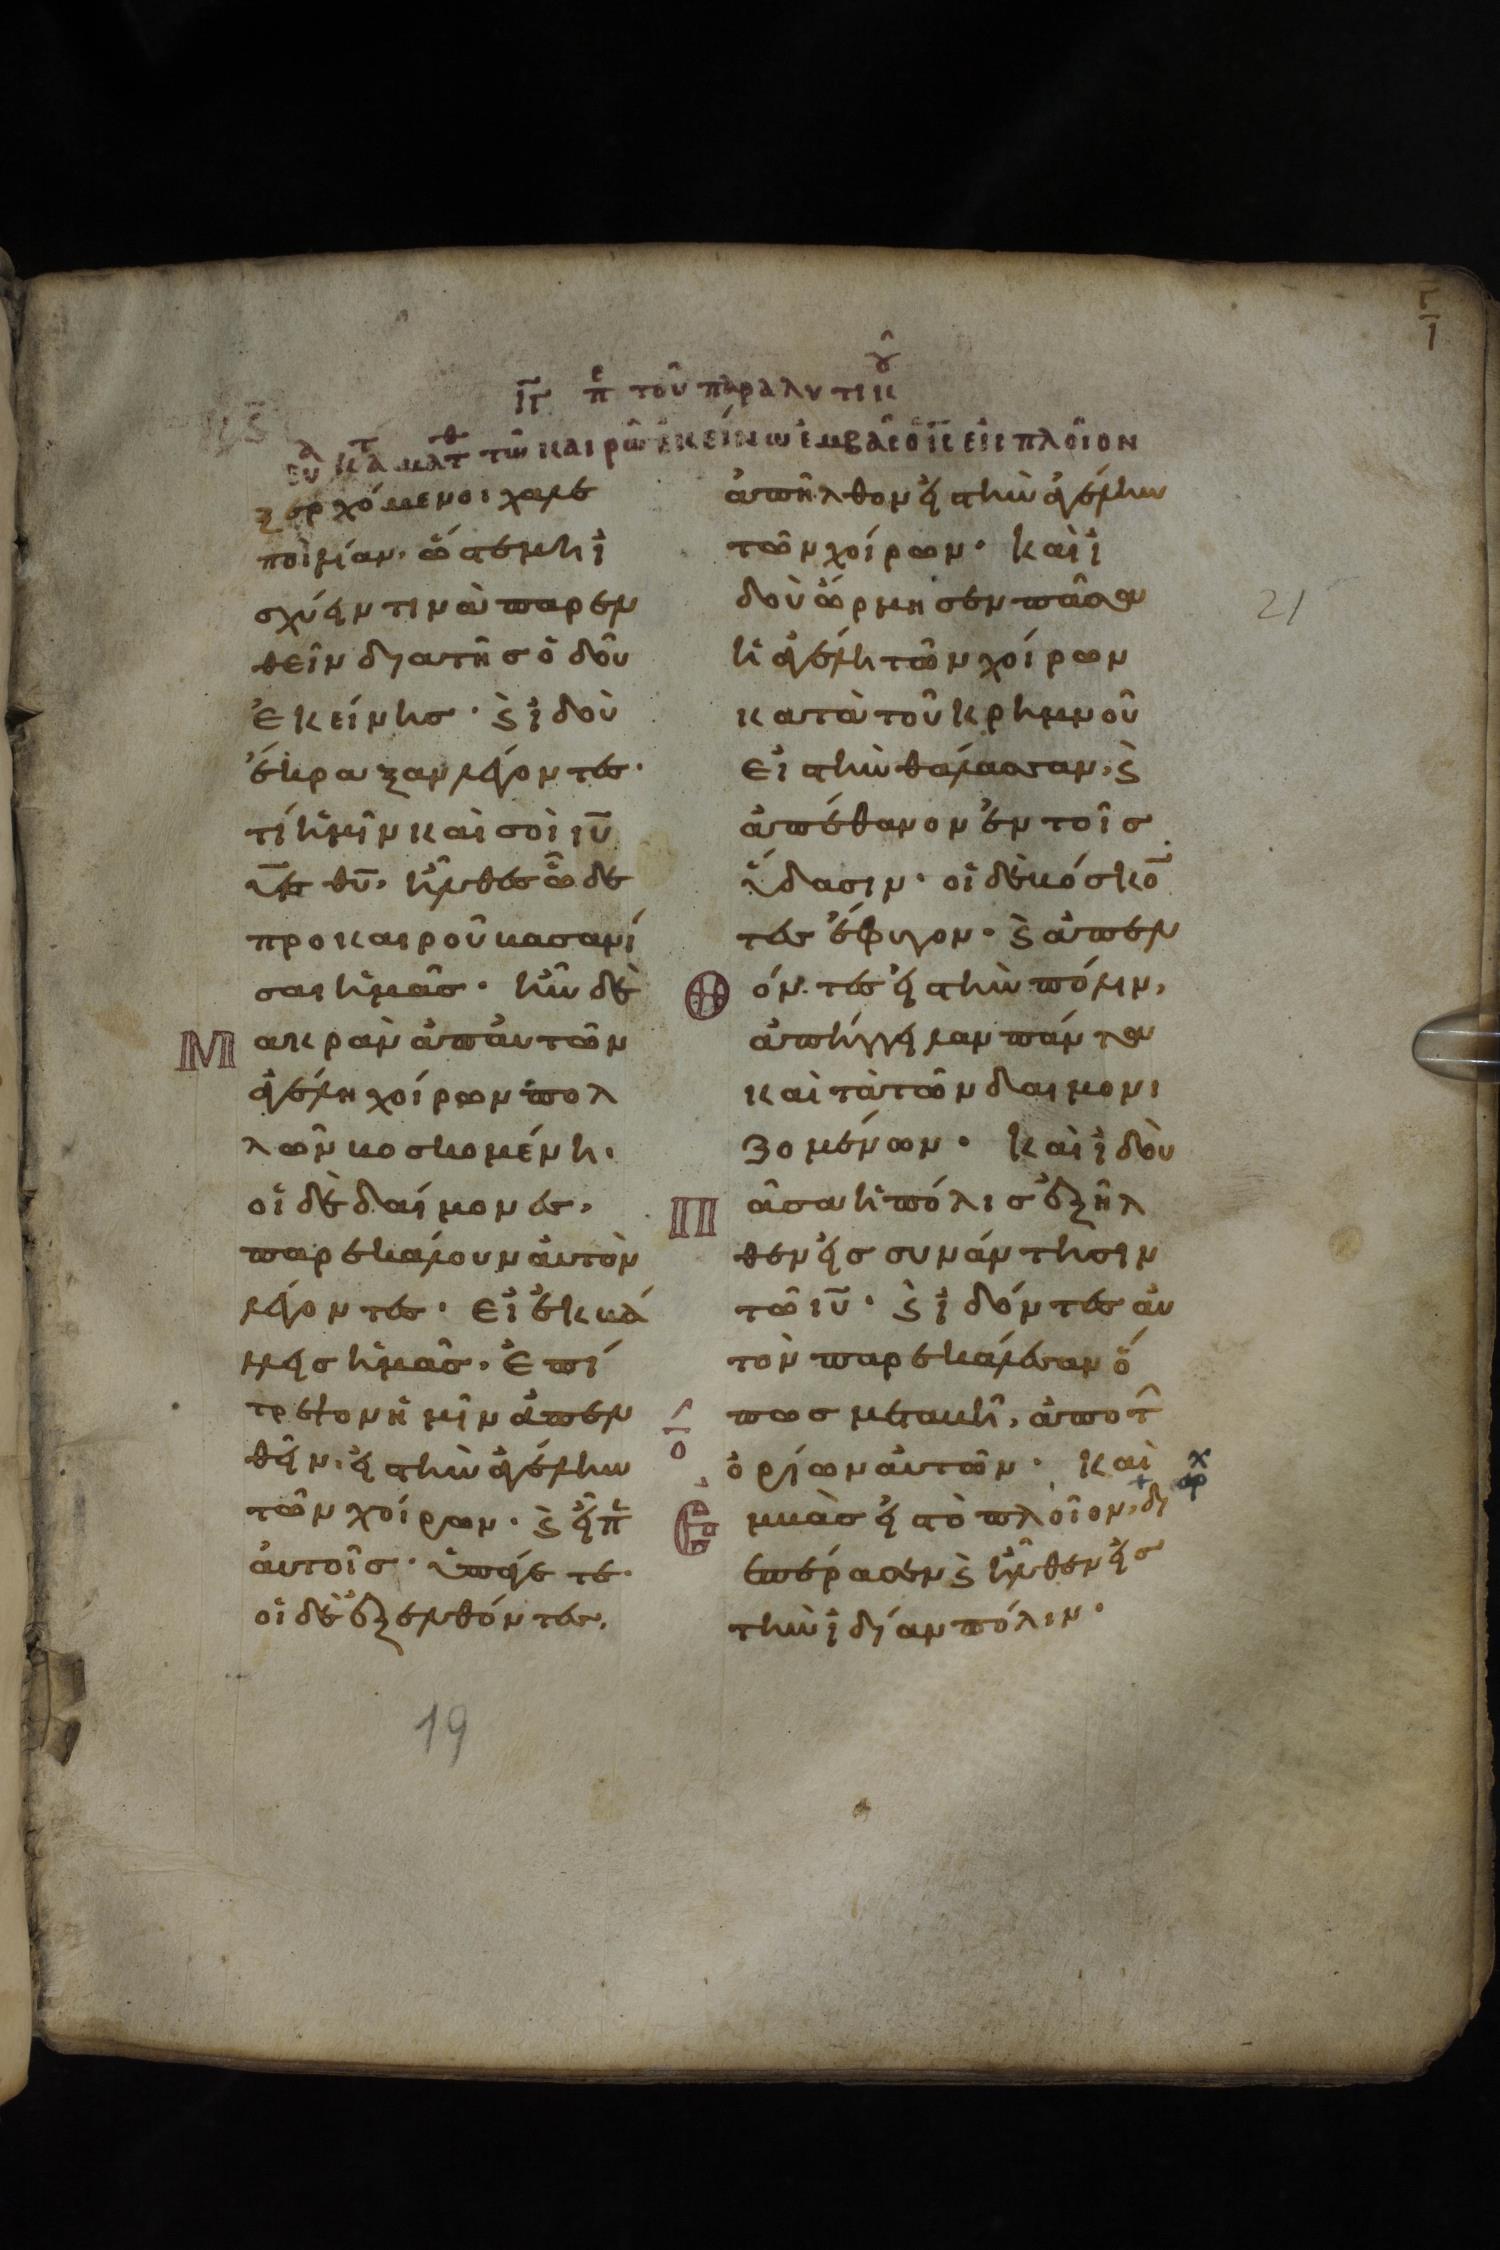 ιγ̅ πε τοῦ παραλυτικοῦ
ευα κατ ματθ τῶ καιρῶ ἐκείνω ἐμβὰς ὁ ις̅ εἰς πλοῖον
ξερχόμενοι χαλε
ποὶ λίαν. ὥστε μὴ ἰ
σχύειν τινὰ παρελ
θεῖν διατῆσ ὁδοῦ
ἐκείνησ. ϗ ἰδοὺ
ἔκραξαν λέγοντεσ.
τί ἡμῖν καὶ σοὶ ιυ̅
υἱὲ θυ̅, ἦλθεσ ὧδε
προ καιροῦ βασανί
σαι ἡμᾶσ. ἦν δὲ
Μακρὰν ἀπ' αὐτῶν
ἀγέλη χοίρων πολ
λῶν βοσκομένη.
οἱ δὲ δαίμονεσ,
παρεκάλουν αὐτὸν
λέγοντεσ. εἰ ἐκβά
λλεισ ἡμᾶσ. ἐπί
τρεψον ἡμῖν ἀπελ
θεῖν εἰσ τὴν ἀγέλην
τῶν χοίρων. ϗ εἶπ
αὐτοῖσ. ὑπάγετε.
οἱ δὲ ἐξελθόντεσ,
ἀπῆλθον εἰσ τὴν ἀγέλην
τῶν χοίρων. καὶ ἰ
δοὺ ὥρμησεν πᾶσα
ἡ ἀγέλη τῶν χοίρων
κατὰ τοῦ κρημνοῦ
εἰσ τὴν θάλασσαν, ϗ
ἀπέθανον ἐν τοῖσ
ὕδασιν. οἱ δὲ βόσκο̅
τεσ ἔφυγον. ϗ ἀπελ
Θόντεσ εἰσ τὴν πόλιν,
ἀπήγγειλαν πάντα
καὶ τὰ τῶν δαιμονι
ζομένων. καὶ ἰδοὺ
Πᾶσα ἡ πόλισ ἐξῆλ
θεν εἰσ συνάντησιν
τῶ ιυ̅. ϗ ἰδόντεσ αὐ
τὸν παρεκάλεσαν ὅ
πωσ μεταβῆ, ἀπο τ
ὁρίων αὐτῶν. καὶ
Ἐμβὰσ εἰσ τὸ πλοῖον, δι
επέρασεν ϗ ἦλθεν εἰσ
τὴν ἰδίαν πόλιν.
21
19